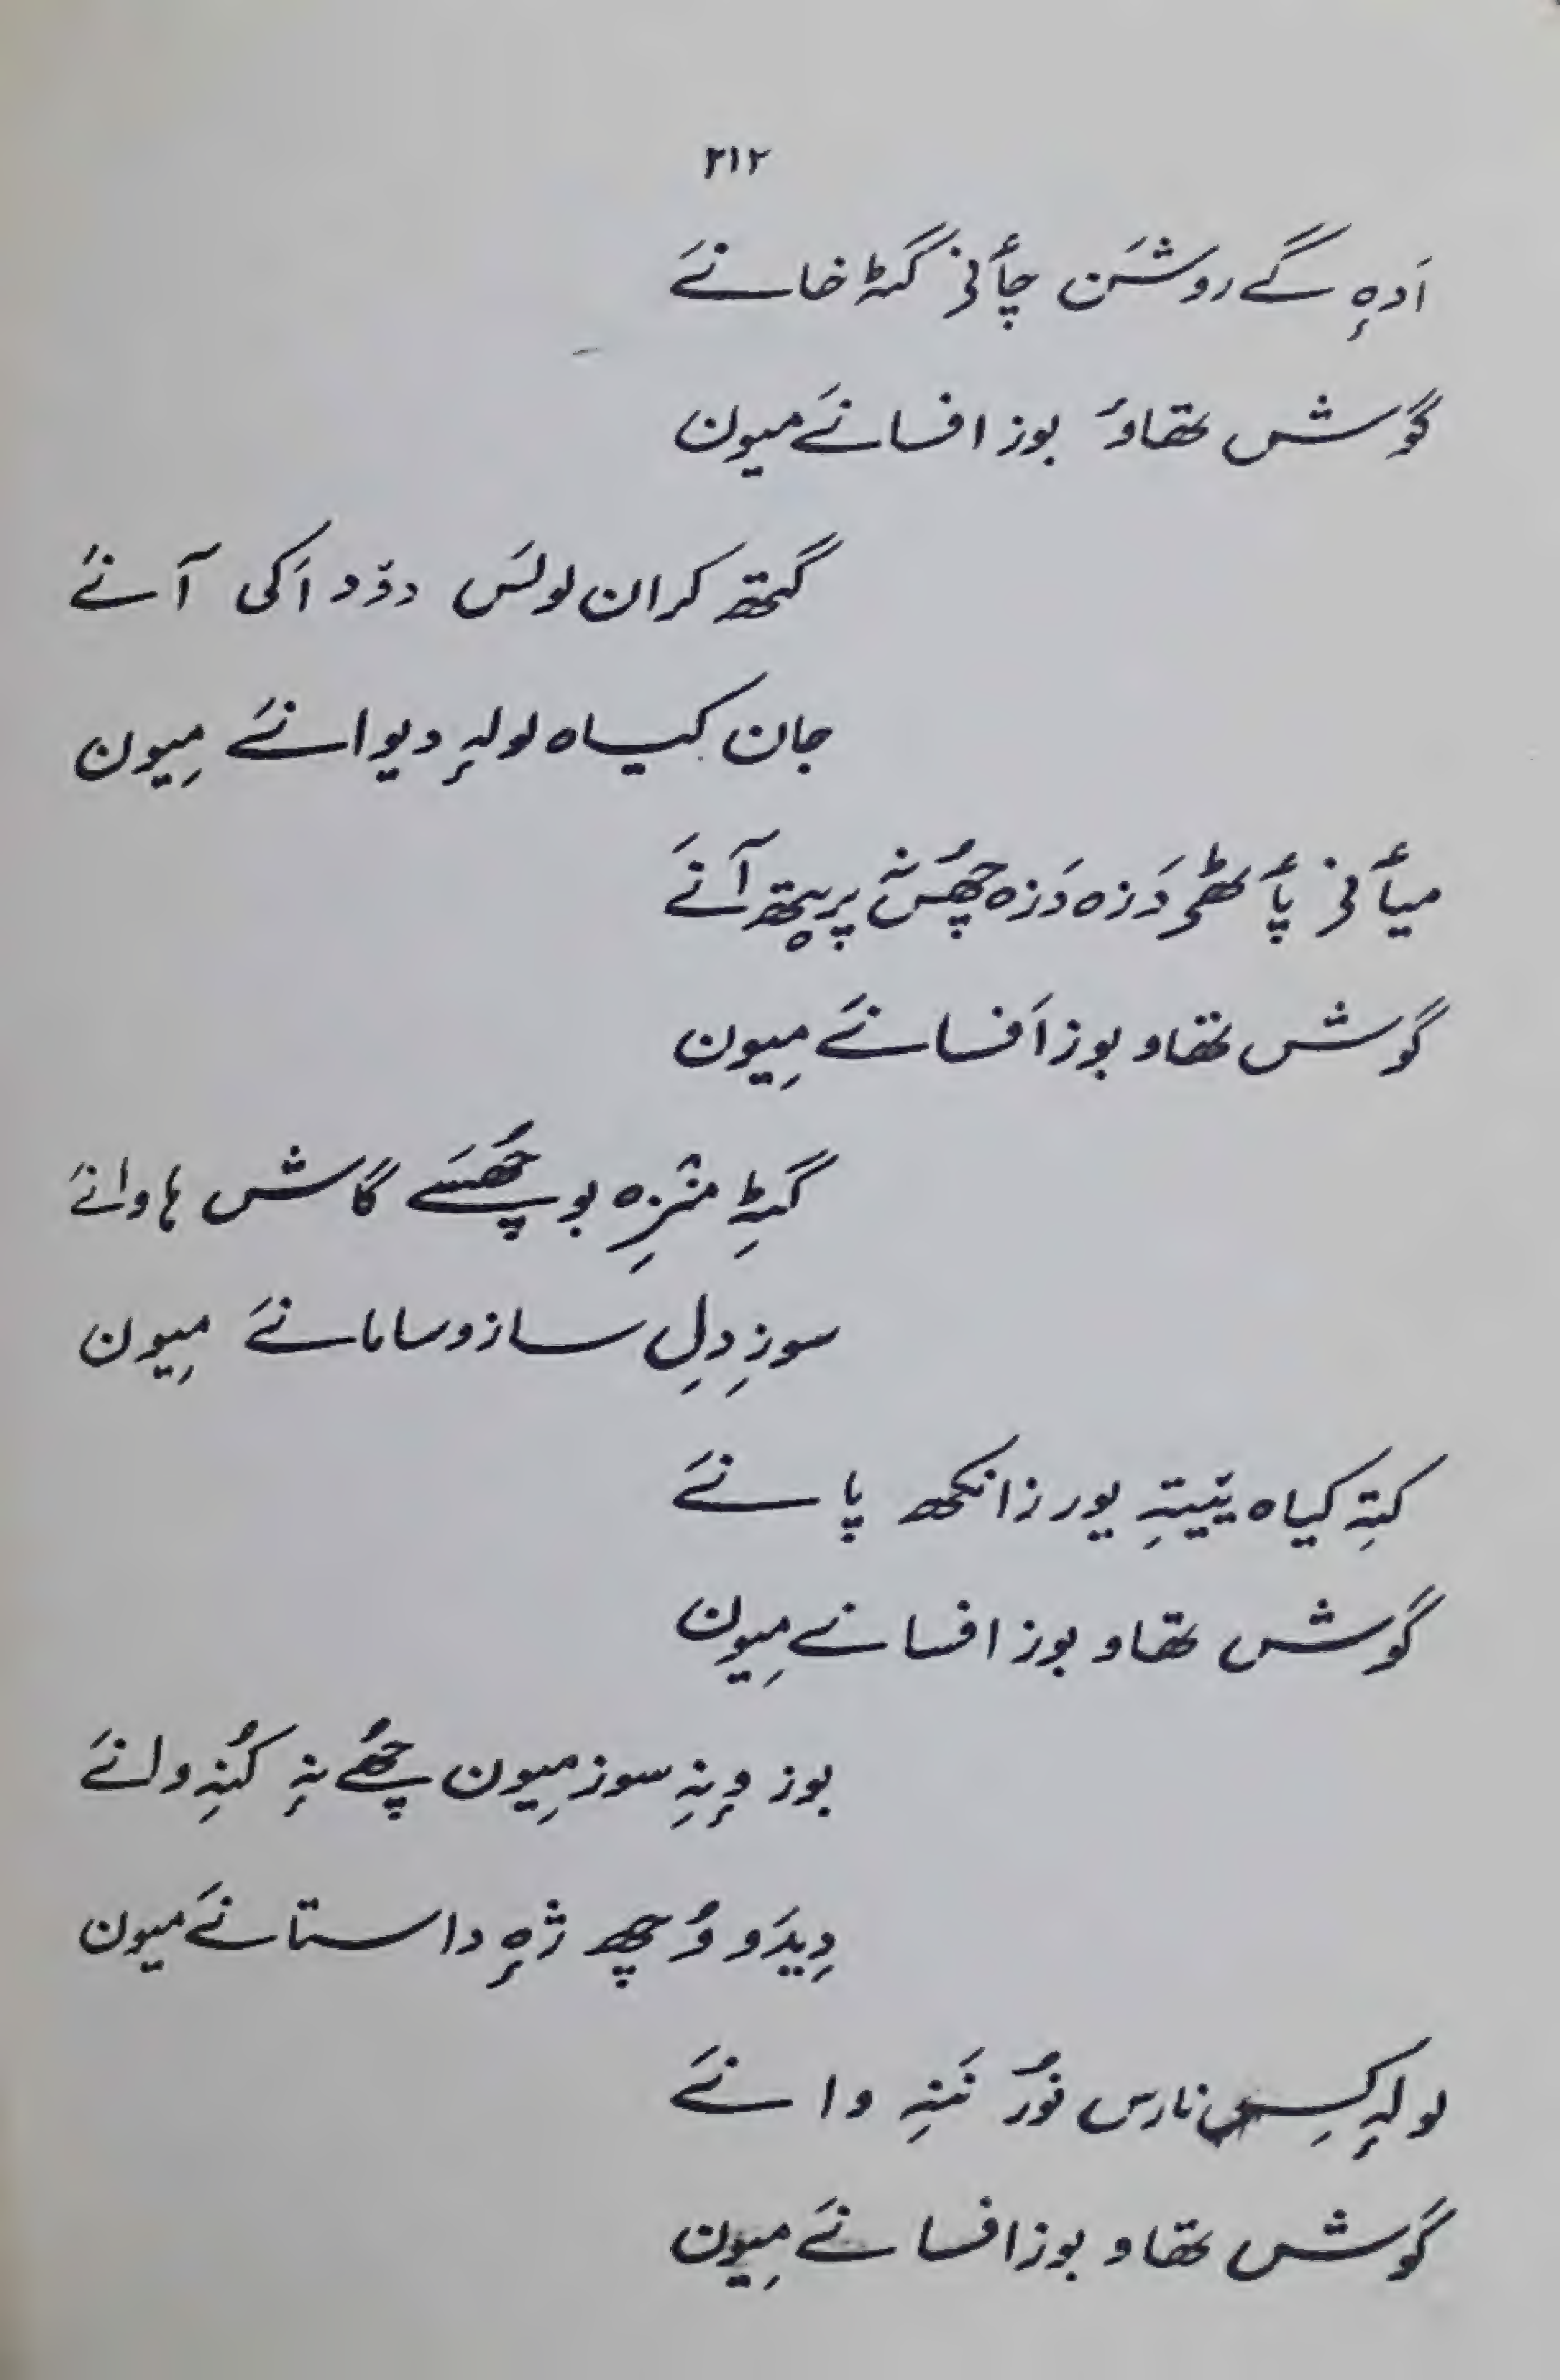 ۳۱۲
اَدہٕ گے روشَن چأنۍ گٹہٕ خانےَ
گوش تھاوٗ بوز افسانےَ میون
گتھ کران لولَس دۆد اَکی آنےَ
جان کیاہ لولہٕ دیوانےَ مِیون
میأنۍ پأٹھۍ دَزہ دَزہ چھُس نہٕ پریتھ آنےَ
گوش تھاو بوز اَفسانےَ مِیون
گٹہِ منٛزِہ بو چھُسَے گاش ہاوانےَ
سوزِ دِلِ ساز و سامانےَ مِیون
کتہِ کیاہ ینیتہِ یور زانکھ پانےَ
گوش تھاو بوز افسانے مِیون
بوز وٕنہِ سوز مِیون چھُے نہٕ کُنہِ ولنےَ
دِیدَو وُچھ ژہٕ داستانےَ میون
لولہٕ کِس نارس نوٗر ننہِ وانےَ
گوش تھاو بوز افسانےَ مِیون